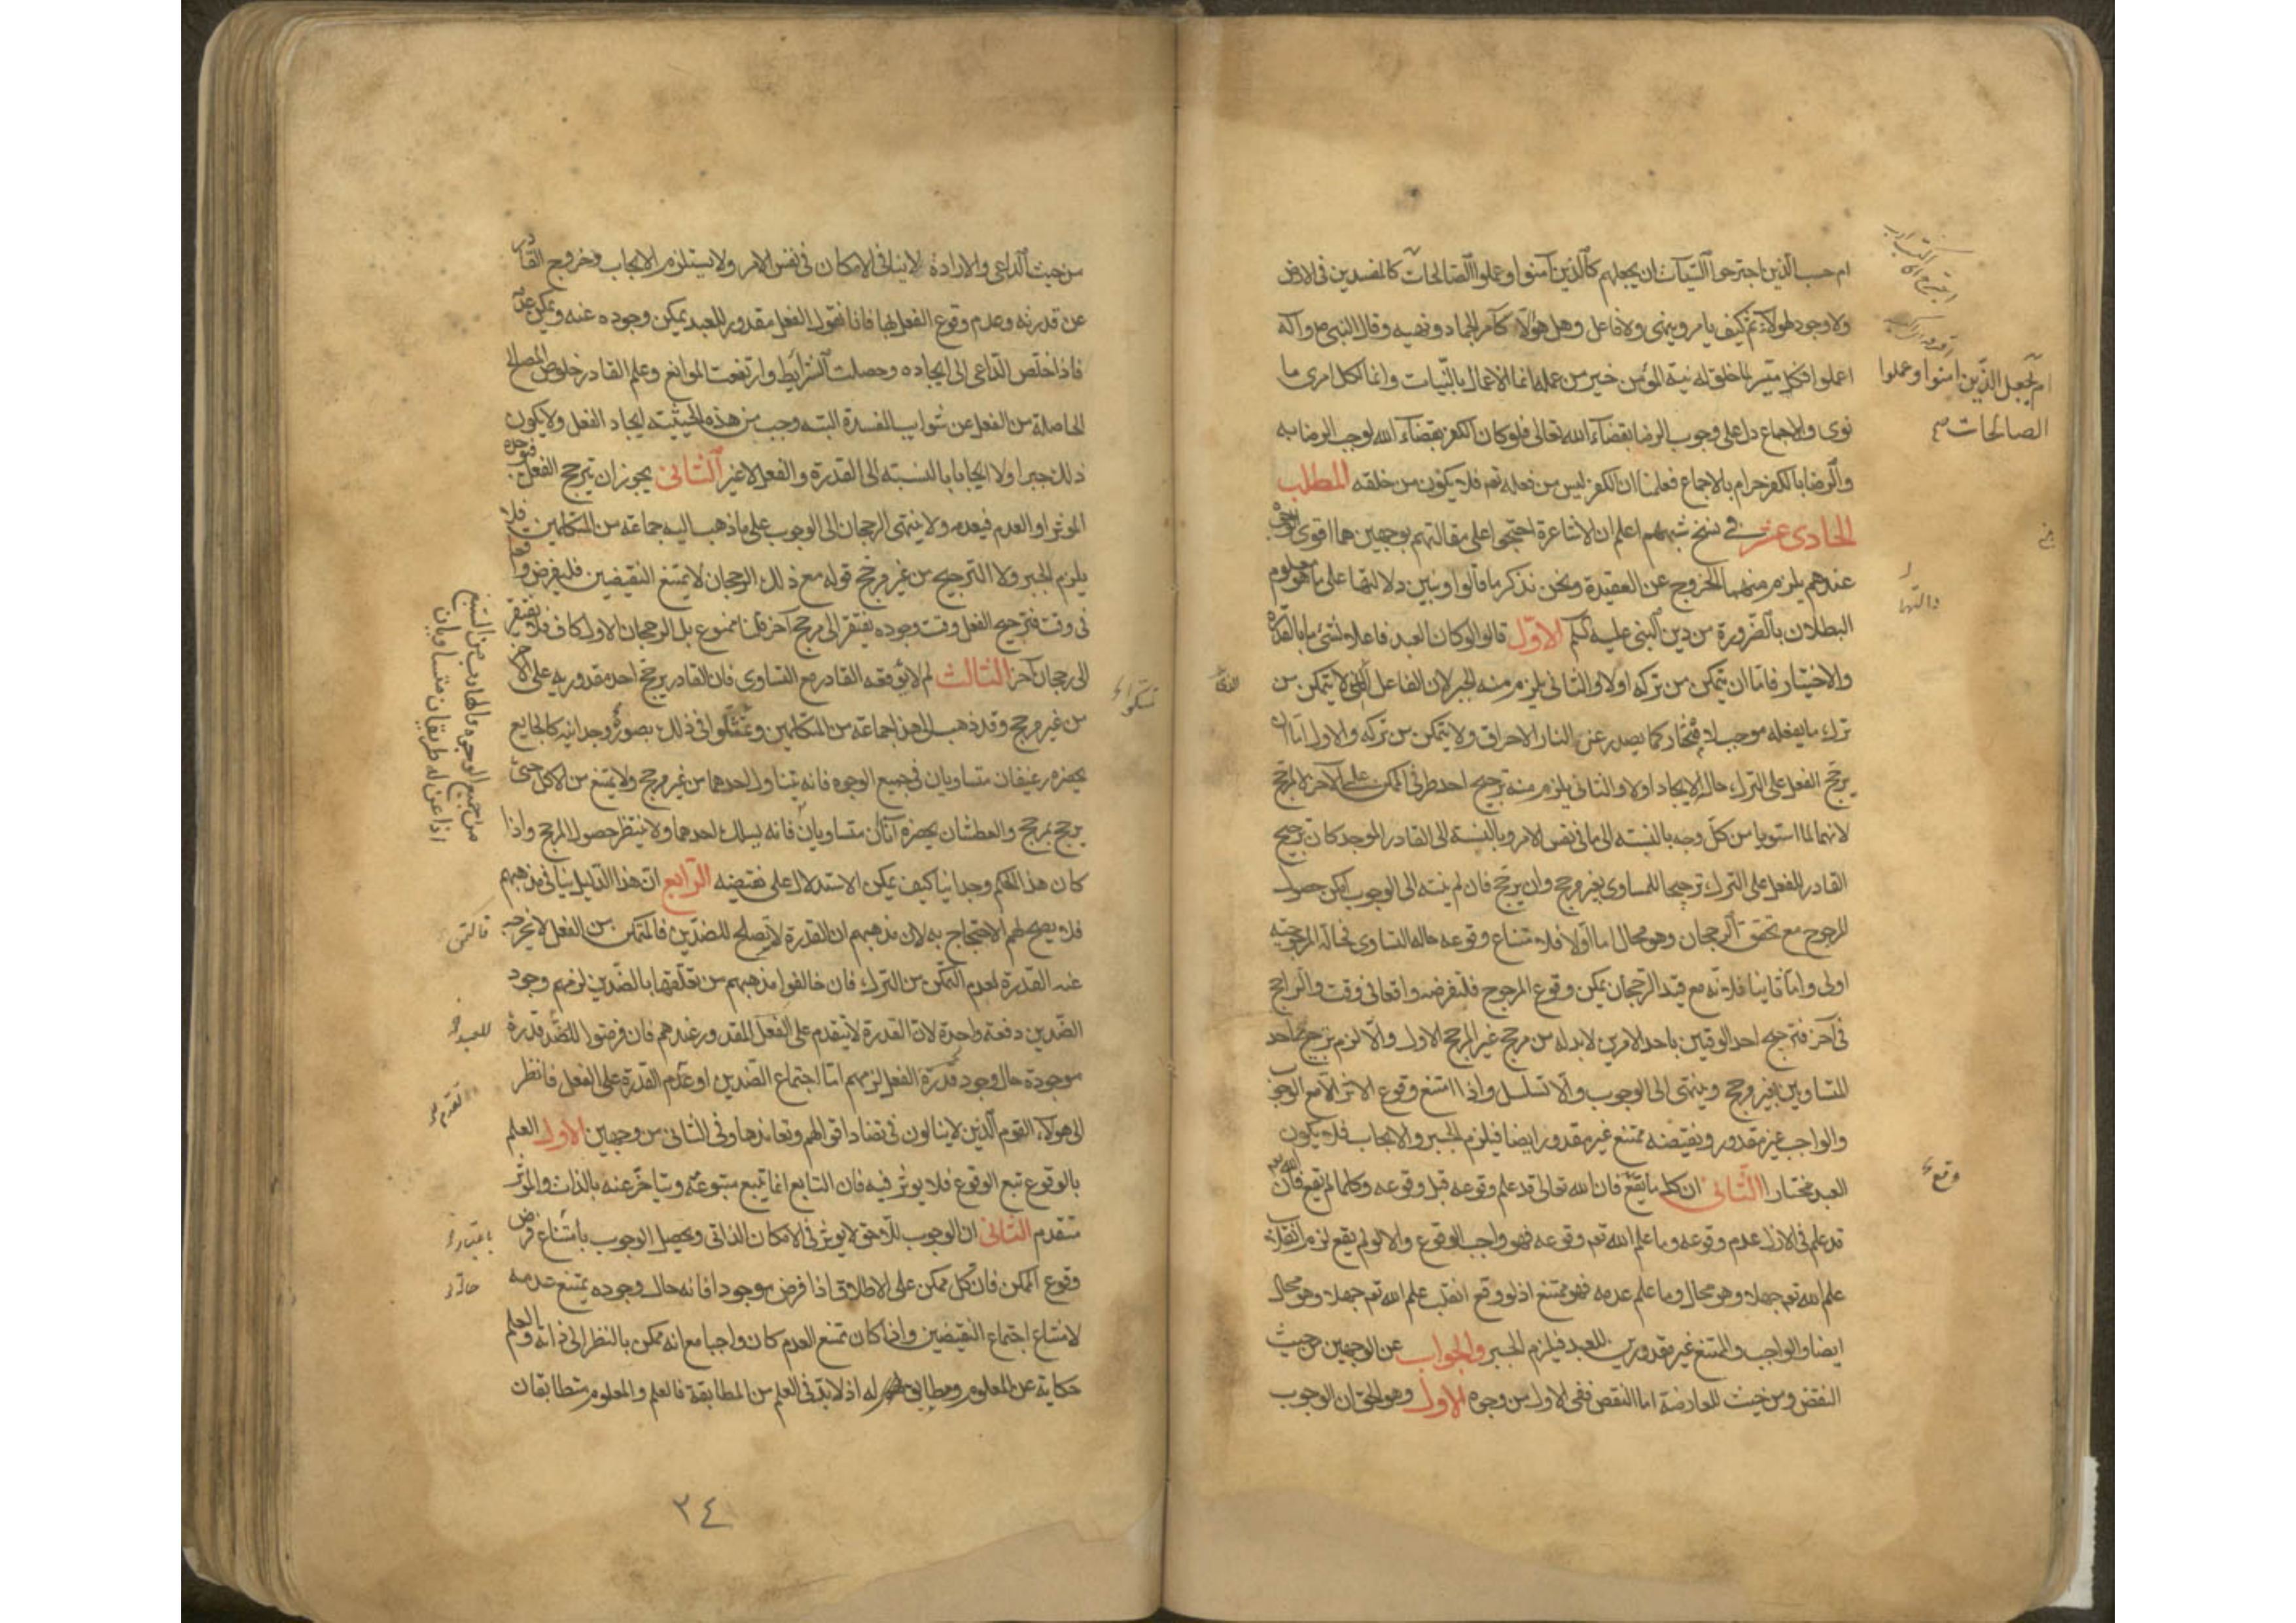 ام حسب الذين اجترحوا السيآت ان نجعلهم كالذين آمنوا وعملوا الصالحات كالمفسدين فى الارض
ولا وجود لهولآء ثم كيف يامر وينهى ولا فاعل وهل هولآء كآمر الجماد ونهيه وقال النبى ص وآله
اعملوا فكل ميسر لما خلق له نية المؤمن خير من عمله انما الاعمال بالنيات وانما لكل امرى ما
نوى والاجماع دل على وجوب الرضا بقضآء الله تعالى فلو كان الكفر بقضآء الله لوجب الرضا به
والرضا بالكفر حرام بالاجماع فعلمنا ان الكفر ليس من فعله تعم فلا يكون من خلقه المطلب
الحادى عشر فى نسخ شبههم اعلم ان الاشاعرة احتجوا على مقالتهم بوجهين هما اقوى الوجوه
عندهم يلزم منهما الخروج عن العقيدة ونحن نذكر ما قالوا ونبين دلالتهما على ما هو معلوم
البطلان بالضرورة من دين النبى عليه السلم الاول قالوا لو كان العبد فاعلا لشئ ما بالقدرة
والاختيار فاما ان يتمكن من تركه اولا والثانى يلزم منه الجبر لان الفاعل الذى لا يتمكن من
ترك ما يفعله موجب لا مختار كما يصدر عن النار الاحراق ولا يتمكن من تركه والاول اما ان
يرجح الفعل على الترك حال الايجاد اولا والثانى يلزم منه ترجيح احد طرفى الممكن على الآخر لا لمرجح
لانهما لما استويا من كل وجه بالنسبة الى ما فى نفس الامر وبالنسبة الى القادر الموجد كان ترجيح
القادر للفعل على الترك ترجيحا للمساوى بغير مرجح وان يرجح فان لم ينته الى الوجوب امكن حصول
المرجوح مع تحقق الرجحان وهو محال اما اولا فلامتناع وقوعه حالة التساوى فحالة المرجوحية
اولى واما ثانيا فلانه مع قيد الرجحان يمكن وقوع المرجوح فلنفرضه واقعا فى وقت والراجح
فى آخر فترجيح احد الوقتين باحد الامرين لا بد له من مرجح غير المرجح الاول والا لزم ترجيح احد
المتساويين بغير مرجح وينتهى الى الوجوب والا تسلسل واذا امتنع وقوع الاثر الا مع الوجوب
والواجب غير مقدور ونقيضه ممتنع غير مقدور ايضا فيلزم الجبر والايجاب فلا يكون
العبد مختارا الثانى ان كل ما يقع فان الله تعالى قد علم وقوعه قبل وقوعه وكلما لم يقع فان الله تعم
قد علم فى الازل عدم وقوعه وما علم الله تعم وقوعه فهو واجب الوقوع والا لو لم يقع لزم انقلاب
علم الله تعم جهلا وهو محال وما علم عدمه فهو ممتنع اذ لو وقع انقلب علم الله تعم جهلا وهو محال
ايضا والواجب والممتنع غير مقدورين للعبد فيلزم الجبر والجواب عن الوجهين من حيث
النقض ومن حيث المعارضة اما النقض ففى الاول من وجوه الاول وهو الحق ان الوجوب
ام نجعل الذين امنوا وعملوا
الصالحات صح
وقع
من حيث الداعى والارادة لا ينافى الامكان فى نفس الامر ولا يستلزم الايجاب وخروج القادر
عن قدرته وعدم وقوع الفعل بها فانا نقول الفعل مقدور للعبد يمكن وجوده عنه ويمكن عدمه
فاذا خلص الداعى الى ايجاده وحصلت الشرايط وارتفعت الموانع وعلم القادر خلوص المصالح
الحاصلة من الفعل عن شوايب المفسدة البتة وجب من هذه الحيثية ايجاد الفعل ولا يكون
ذلك جبرا ولا ايجابا بالنسبة الى القدرة والفعل لا غير الثانى يجوز ان يترجح الفعل فيوجده
الموثر او العدم فيعدمه ولا ينتهى الرجحان الى الوجوب على ما ذهب اليه جماعة من المتكلمين فلا
يلزم الجبر ولا الترجيح من غير مرجح قوله مع ذلك الرجحان لا يمتنع النقيضين فليفرض واقعا
فى وقت فترجيح الفعل وقت وجوده يفتقر الى مرجح آخر قلنا ممنوع بل الرجحان الاول كاف فلا يفتقر
الى رجحان آخر الثالث لم لا يوقعه القادر مع التساوى فان القادر يرجح احد مقدوريه على الآخر
من غير مرجح وقد ذهب الى هذا جماعة من المتكلمين وتمثلوا فى ذلك بصورة وجدانية كالجايع
يحضره رغيفان متساويان فى جميع الوجوه فانه يتناول احدهما من غير مرجح ولا يمتنع من الاكل حتى
يرجح بمرجح والعطشان يحضره آنآن متساويان فانه يسلك احدهما ولا ينتظر حصول المرجح واذا
كان هذا الحكم وجدانيا كيف يمكن الاستدلال على نقيضه الرابع ان هذا الدليل ينافى مذهبهم
فلا يصح لهم الاحتجاج به لان مذهبهم ان القدرة لا تصلح للضدين فالمتمكن من الفعل لا يخرج
عنه القدرة لعدم التمكن من الترك فان خالفوا مذهبهم من تعلقها بالضدين لزمهم وجود
الضدين دفعة واحدة لان القدرة لا تتقدم على الفعل المقدور عندهم فان فرضوا للضد قدرة
موجودة حال وجود قدرة الفعل لزمهم اما اجتماع الضدين او عدم القدرة على الفعل فانظر
الى هولآء القوم الذين لا يبالون فى تضاد اقوالهم وتعاندها وفى الثانى من وجهين الاول العلم
بالوقوع تبع الوقوع فلا يوثر فيه فان التابع انما يتبع متبوعه ويتاخر عنه بالذات والموثر
متقدم الثانى ان الوجوب اللاحق لا يوثر فى الامكان الذاتى ويحصل الوجوب بامتناع فرض
وقوع الممكن فان كل ممكن على الاطلاق اذا فرض موجودا فانه حال وجوده يمتنع عدمه
لامتناع اجتماع النقيضين واذا كان ممتنع العدم كان واجبا مع انه ممكن بالنظر الى ذاته والعلم
حكاية عن المعلوم ومطابق له اذ لا بد فى العلم من المطابقة فالعلم والمعلوم متطابقان
من جميع الوجوه والهارب من السبع
اذا عن له طريقان متساويان
٢٤